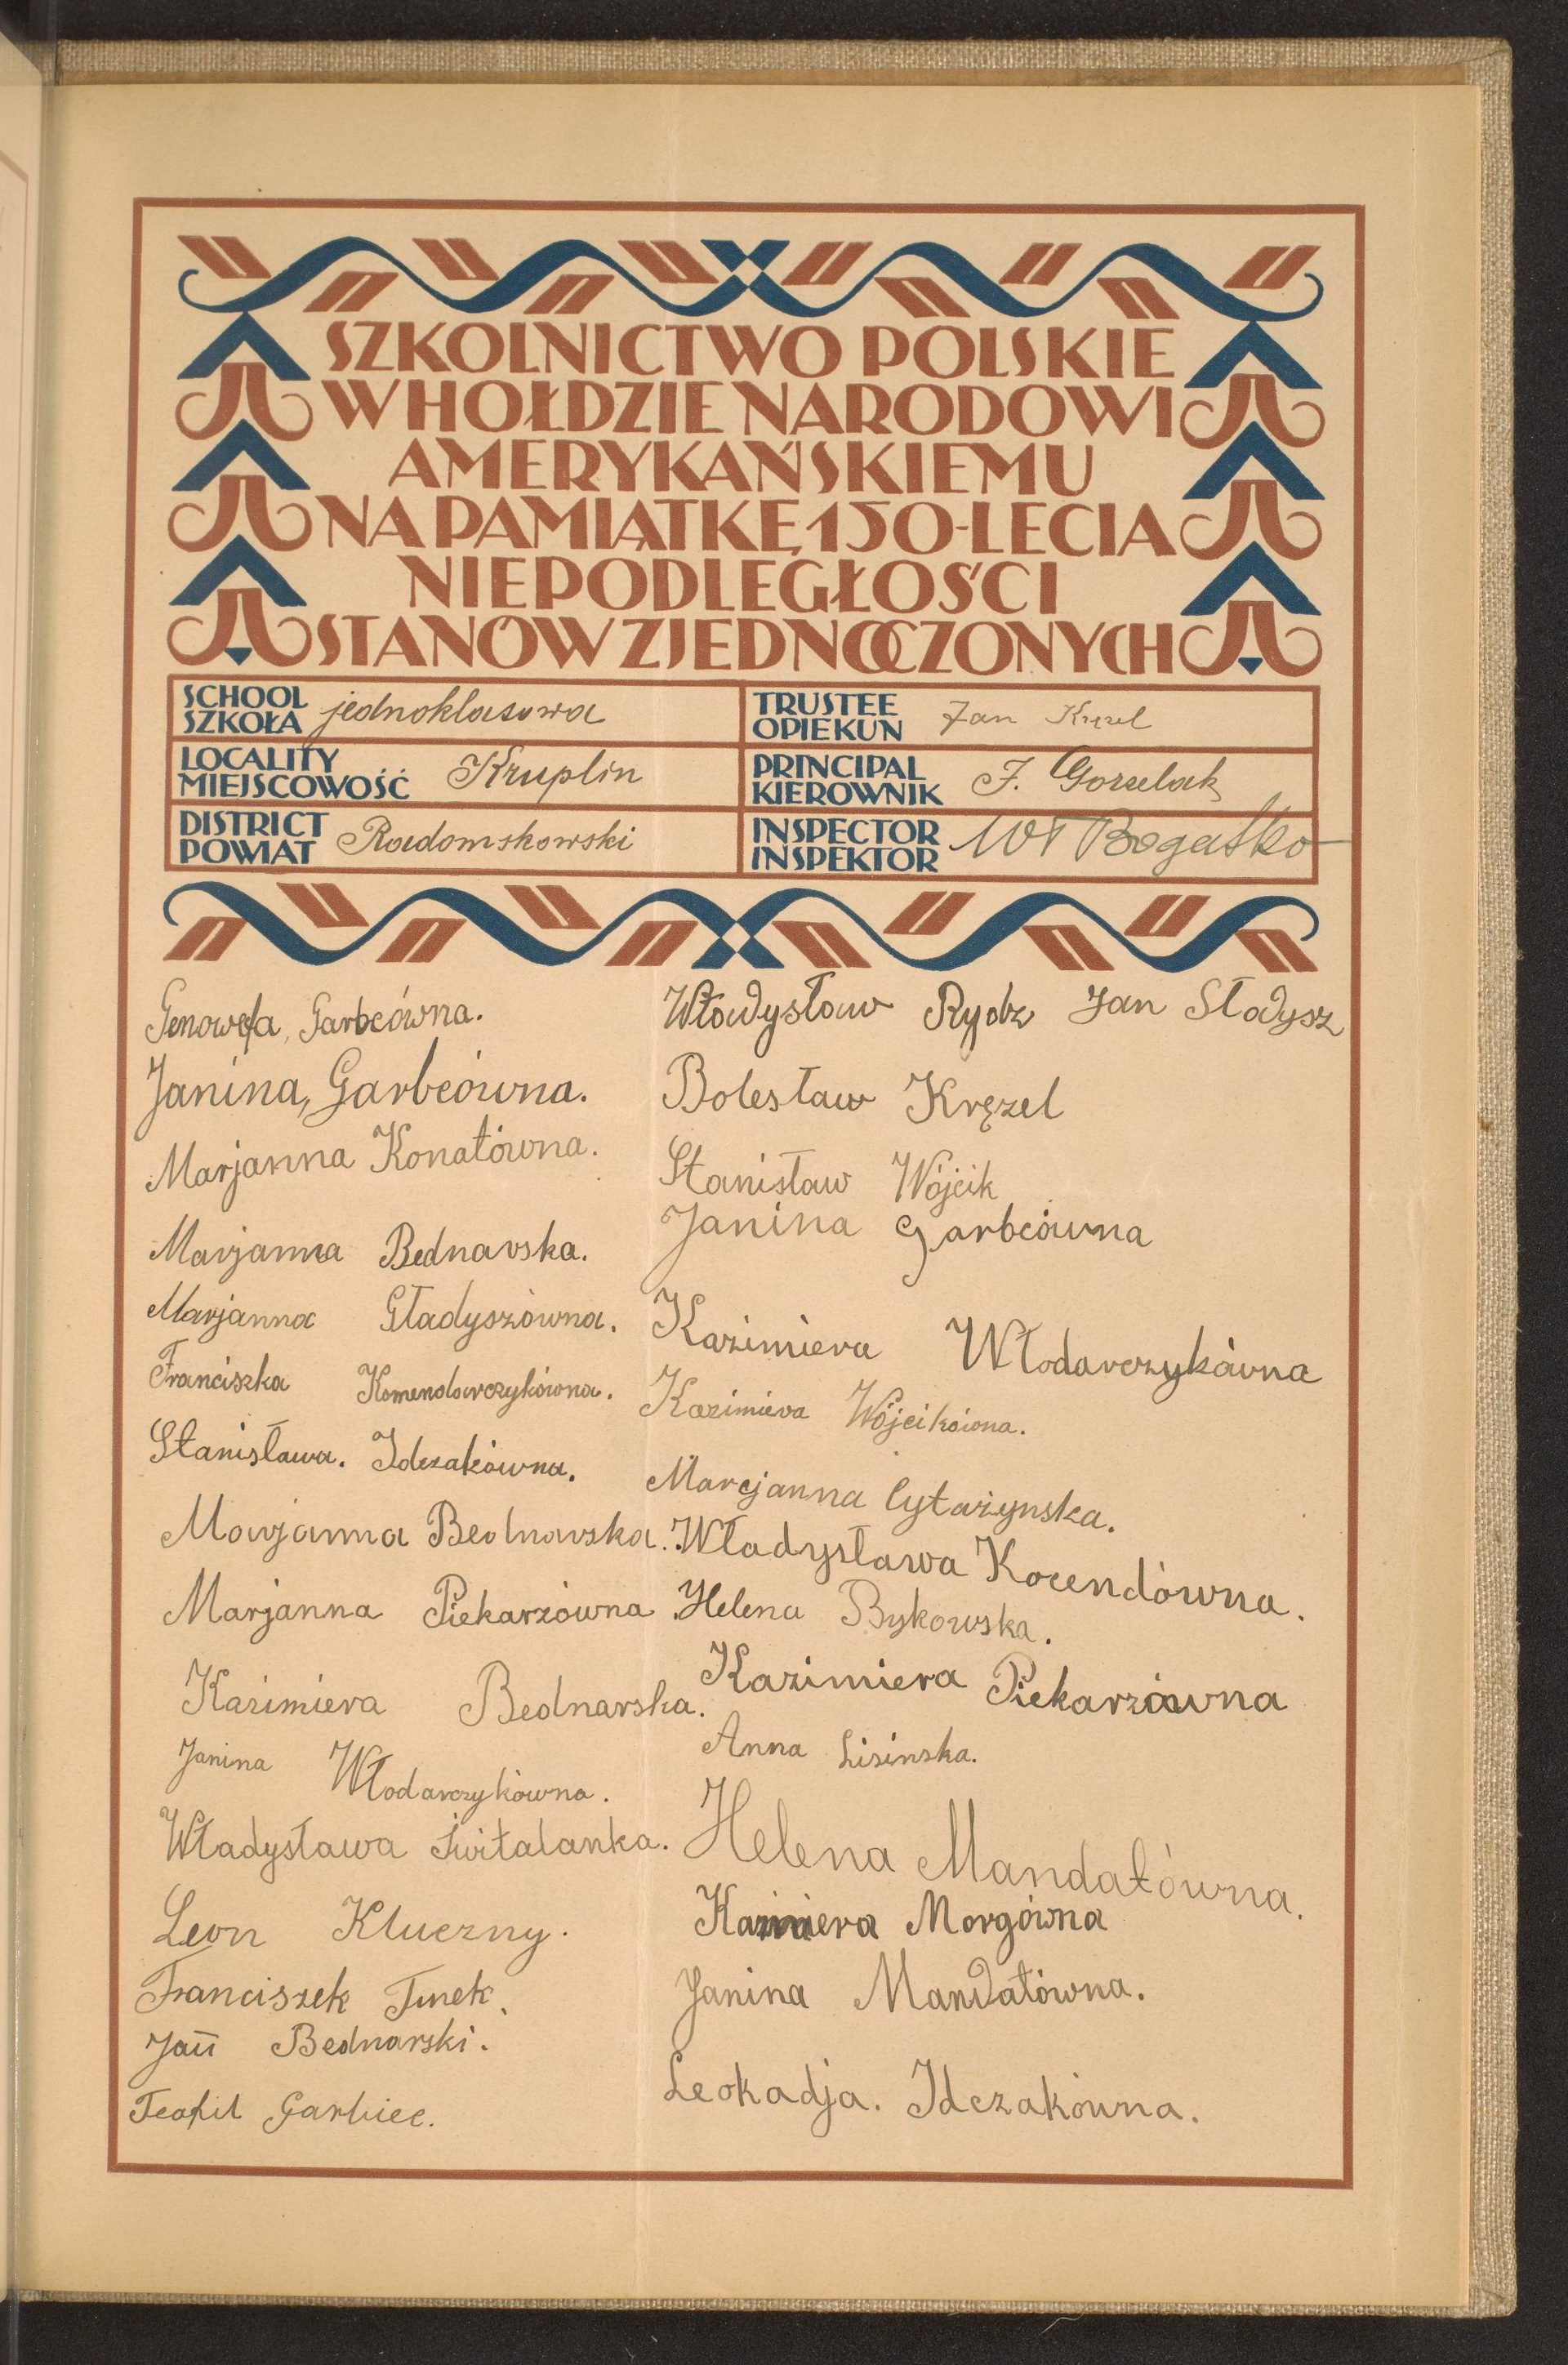 SZKOLNICTWO POLSKIE
W HOŁDZIE NARODOWI
AMERYKAŃSKIEMU
NA PAMIĄTKĘ 150-LECIA
NIEPODLEGŁOŚCI
STANÓW ZJEDNOCZONYCH
SCHOOL
SZKOŁA jednoklasowa
TRUSTEE
OPIEKUN Jan Kręzel
LOCALITY
MIEJSCOWOŚĆ Kruplin
PRINCIPAL
KIEROWNIK J. Gorzelak
DISTRICT
POWIAT Radomskowski
INSPECTOR
INSPEKTOR Wł Bogatko
Genowefa, Garbcówna.
Janina, Garbcówna.
Marjanna Konatówna.
Marjanna Bednarska.
Marjanna Gładyszówna.
Franciszka Komendarczykówna.
Stanisława. Idczakówna.
Marjanna Bednarska.
Marjanna Piekarzówna.
Kazimiera Bednarska.
Janina Włodarczykówna.
Władysława Świtalanka.
Leon Kluczny.
Franciszek Turek.
Jan Bednarski.
Teofil Garbiec.
Władysław Rydz Jan Sładysz
Bolesław Kręzel
Stanisław Wójcik
Janina Garbcówna
Kazimiera Włodarczykówna
Kazimiera Wójcikówna.
Marcjanna Cytażynska.
Władysława Kocendówna.
Helena Bykowska.
Kazimiera Piekarzówna
Anna Lisinska.
Helena Mandatówna.
Kazimiera Morgówna
Janina Mandatówna.
Leokadja. Idczakówna.